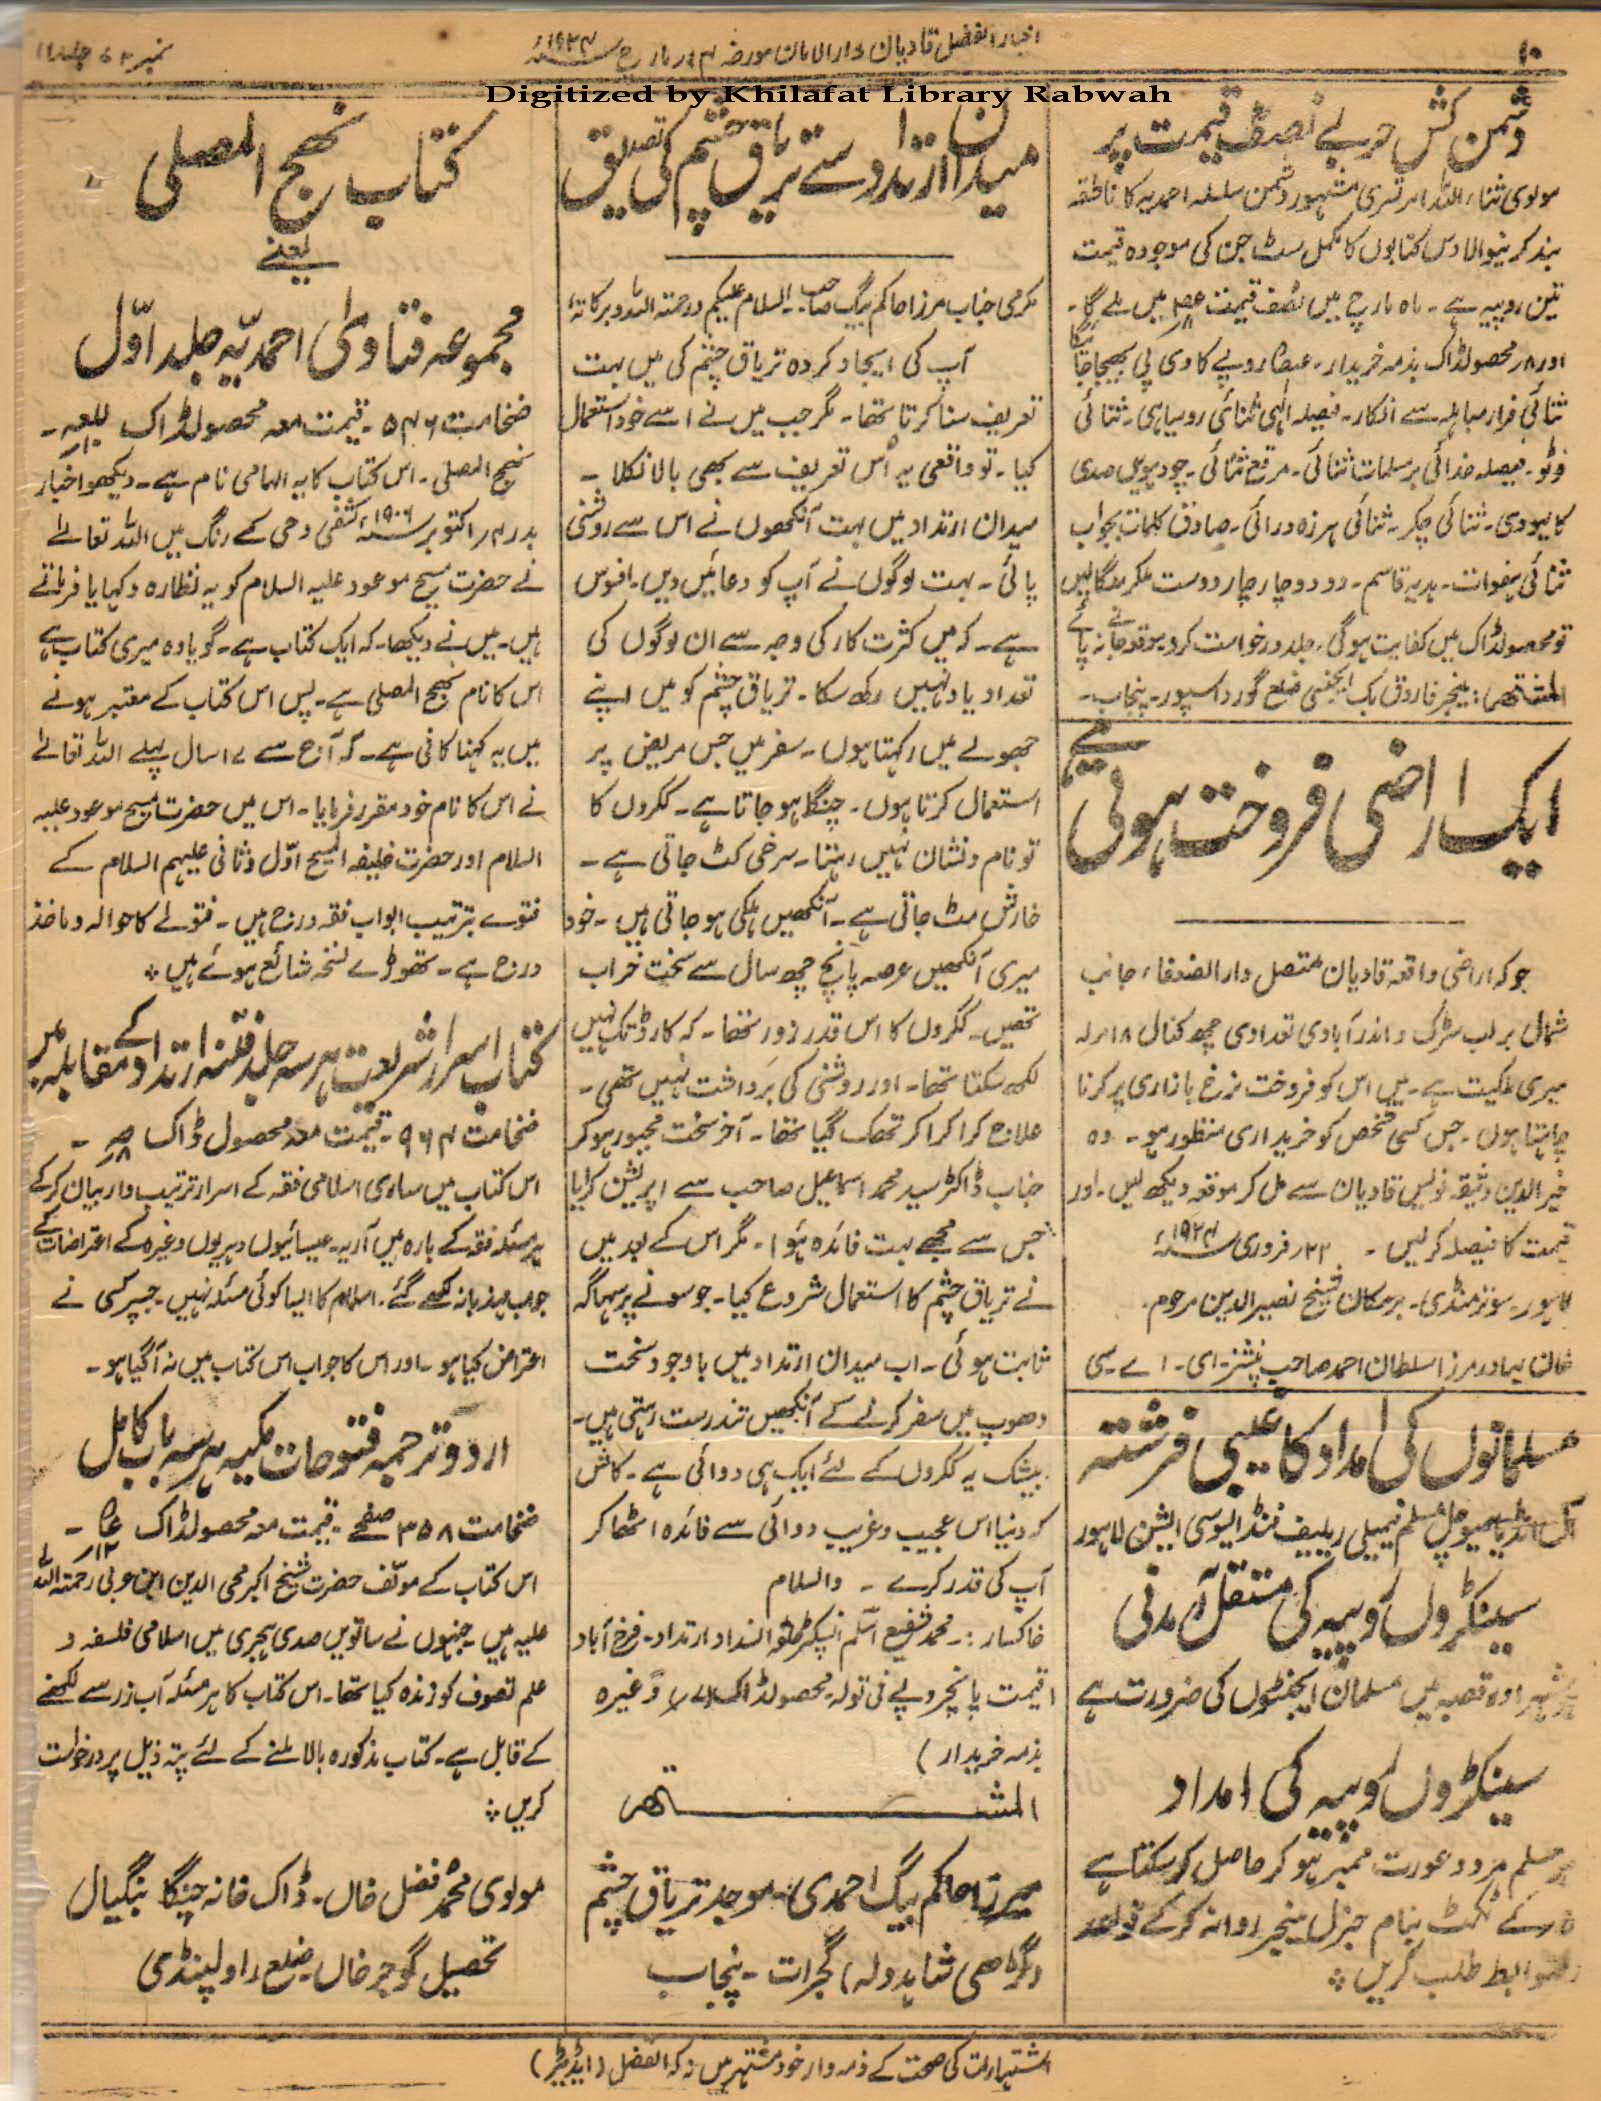 ۱۰
اخبار الفضل قادیان دارالامان مورخہ ۴؍ مارچ ۱۹۲۴ء
نمبر ۶۷ جلد ۱۱
Digitized by Khilafat Library Rabwah
دشمن کش حربے نصف قیمت پر
مولوی ثناء اللہ امرتسری مشہور دشمن سلسلہ احمدیہ کا ناطقہ
بند کرنیوالا دس کتابوں کا مکمل سٹ جن کی موجودہ قیمت
تین روپیہ ہے۔ ماہ مارچ میں نصف قیمت میں ملے گا۔
اور ۸؍ محصولڈاک بذمہ خریدار۔ روپے کا وی پی بھیجا جائیگا
ثنائی فرار مباہلہ سے انکار۔ فیصلہ الٰہی ثنائی روسیاہی۔ ثنائی
فوٹو۔ فیصلہ خدائی بر مسلمات ثنائی۔ مرقع ثنائی۔ چودہویں صدی
کا یہودی۔ ثنائی چکر۔ ثنائی ہرزہ درائی۔ صادق کلمات بجواب
ثنائی ہفوات۔ ہدیہ قاسم۔ دو دو چار چار دوست ملکر منگائیں
تو محصولڈاک میں کفایت ہوگی۔ جلد درخواست کرو موقع جانے نہ پائے
المشتہر: مینجر فاروق بک ایجنسی ضلع گورداسپور۔ پنجاب۔
ایک اراضی فروخت ہوتی ہے
جو کہ اراضی واقعہ قادیان متصل دارالضعفاء جانب
شمال بر لب سڑک و اندر آبادی تعدادی چھ کنال ۱۸ مرلہ
میری ملکیت ہے۔ میں اس کو فروخت نرخ بازاری پر کرنا
چاہتا ہوں۔ جس کسی شخص کو خریداری منظور ہو۔ وہ
خیر الدین وثیقہ نویس قادیان سے مل کر موقعہ دیکھ لیں۔ اور
قیمت کا فیصلہ کر لیں۔ ۲۲؍ فروری ۱۹۲۴ء
لاہور۔ سوتر منڈی۔ بر مکان شیخ نصیر الدین مرحوم۔
خان بہادر مرزا سلطان احمد صاحب پنشنر۔ ای۔ اے۔ سی
مسلمانوں کی امداد کا غیبی فرشتہ
آل انڈیا میوچل مسلم فیمیلی ریلیف فنڈ ایسوسی ایشن لاہور
سینکڑوں روپیہ کی مستقل آمدنی
ہر شہر اور قصبہ میں مسلمان ایجنٹوں کی ضرورت ہے
سینکڑوں روپیہ کی امداد
ہر مسلم مرد و عورت ممبر ہو کر حاصل کر سکتا ہے
۵؍ کے ٹکٹ بنام جنرل مینجر روانہ کر کے قواعد
و ضوابط طلب کریں
میدان ارتداد سے تریاق چشم کی تصدیق
مکرمی جناب مرزا حاکم بیگ صاحب۔ السلام علیکم ورحمتہ اللہ وبرکاتہ
آپ کی ایجاد کردہ تریاق چشم کی میں بہت
تعریف سنا کرتا تھا۔ مگر جب میں نے اسے خود استعمال
کیا۔ تو واقعی یہ اس تعریف سے بھی بالا نکلا۔
میدان ارتداد میں بہت آنکھوں نے اس سے روشنی
پائی۔ بہت لوگوں نے آپ کو دعائیں دیں۔ افسوس
ہے۔ کہ میں کثرت کار کی وجہ سے ان لوگوں کی
تعداد یاد نہیں رکھ سکا۔ تریاق چشم کو میں اپنے
جھولے میں رکھتا ہوں۔ سفر میں جس مریض پر
استعمال کرتا ہوں۔ چنگا ہو جاتا ہے۔ ککروں کا
تو نام و نشان نہیں رہتا۔ سرخی کٹ جاتی ہے۔
خارش مٹ جاتی ہے۔ آنکھیں ہلکی ہو جاتی ہیں۔ خود
میری آنکھیں عرصہ پانچ چھ سال سے سخت خراب
تھیں۔ ککروں کا اس قدر زور تھا۔ کہ کارڈ تک نہیں
لکھ سکتا تھا۔ اور روشنی کی برداشت نہیں تھی۔
علاج کرا کرا کر تھک گیا تھا۔ آخر سخت مجبور ہو کر
جناب ڈاکٹر سید محمد اسماعیل صاحب سے اپریشن کرایا
جس سے مجھے بہت فائدہ ہوا۔ مگر اس کے بعد میں
نے تریاق چشم کا استعمال شروع کیا۔ جو سونے پر سہاگہ
ثابت ہوئی۔ اب میدان ارتداد میں باوجود سخت
دھوپ میں سفر کرنے کے آنکھیں تندرست رہتی ہیں۔
بیشک یہ ککروں کے لئے ایک ہی دوائی ہے۔ کاش
کہ دنیا اس عجیب و غریب دوائی سے فائدہ اٹھا کر
آپ کی قدر کرے۔ والسلام
خاکسار:۔ محمد شفیع اسلم انسپکٹر حلقہ انسداد ارتداد۔ فرخ آباد
(قیمت پانچروپے فی تولہ۔ محصولڈاک وغیرہ
بذمہ خریدار)
المشتہر
میرزا حاکم بیگ احمدی۔ موجد تریاق چشم
(گڑھی شاہدولہ) گجرات۔ پنجاب
کتاب نھج المصلی
یعنے
مجموعہ فتاویٰ احمدیہ جلد اوّل
ضخامت ۵۴۶۔ قیمت معہ محصولڈاک
نہج المصلی۔ اس کتاب کا یہ الہامی نام ہے۔ دیکھو اخبار
بدر ۴؍ اکتوبر ۱۹۰۶ء کشفی وحی کے رنگ میں اللہ تعالےٰ
نے حضرت مسیح موعود علیہ السلام کو یہ نظارہ دکھایا فرماتے
ہیں۔ میں نے دیکھا۔ کہ ایک کتاب ہے۔ گویا وہ میری کتاب ہے
اس کا نام نہج المصلی ہے۔ پس اس کتاب کے معتبر ہونے
میں یہ کہنا کافی ہے۔ کہ آج سے ۱۷ سال پہلے اللہ تعالےٰ
نے اس کا نام خود مقرر فرمایا۔ اس میں حضرت مسیح موعود علیہ
السلام اور حضرت خلیفۃ المسیح اوّل و ثانی علیہم السلام کے
فتوے بترتیب ابواب فقہ درج ہیں۔ فتوے کا حوالہ و ماخذ
درج ہے۔ تھوڑے نسخہ شائع ہوئے ہیں
کتاب اسرار شریعت ہر سہ جلد فتنہ ارتداد کے مقابلہ میں
ضخامت ۹۶۴۔ قیمت معہ محصول ڈاک
اس کتاب میں ساری اسلامی فقہ کے اسرار ترتیب وار بیان کر کے
ہر مسئلہ فقہ کے بارہ میں آریہ۔ عیسائیوں دہریوں وغیرہ کے اعتراضات کے
جواب مہذبانہ لکھے گئے۔ اسلام کا ایسا کوئی مسئلہ نہیں۔ جس پر کسی نے
اعتراض کیا ہو۔ اور اس کا جواب اس کتاب میں نہ آ گیا ہو۔
اردو ترجمہ فتوحات مکیہ ہر سہ باب کامل
ضخامت ۳۵۸ صفحے۔ قیمت معہ محصولڈاک
اس کتاب کے مؤلف حضرت شیخ اکبر محی الدین ابن عربی رحمتہ اللہ
علیہ ہیں۔ جنہوں نے ساتویں صدی ہجری میں اسلامی فلسفہ و
علم تصوف کو زندہ کیا تھا۔ اس کتاب کا ہر مسئلہ آب زر سے لکھنے
کے قابل ہے۔ کتاب مذکورہ بالا ملنے کے لئے پتہ ذیل پر درخواست
کریں
مولوی محمد فضل خاں۔ ڈاک خانہ چنگا بنگیال
تحصیل گوجر خاں۔ ضلع راولپنڈی
اشتہارات کی صحت کے ذمہ وار خود مشتہر ہیں نہ کہ الفضل (ایڈیٹر)